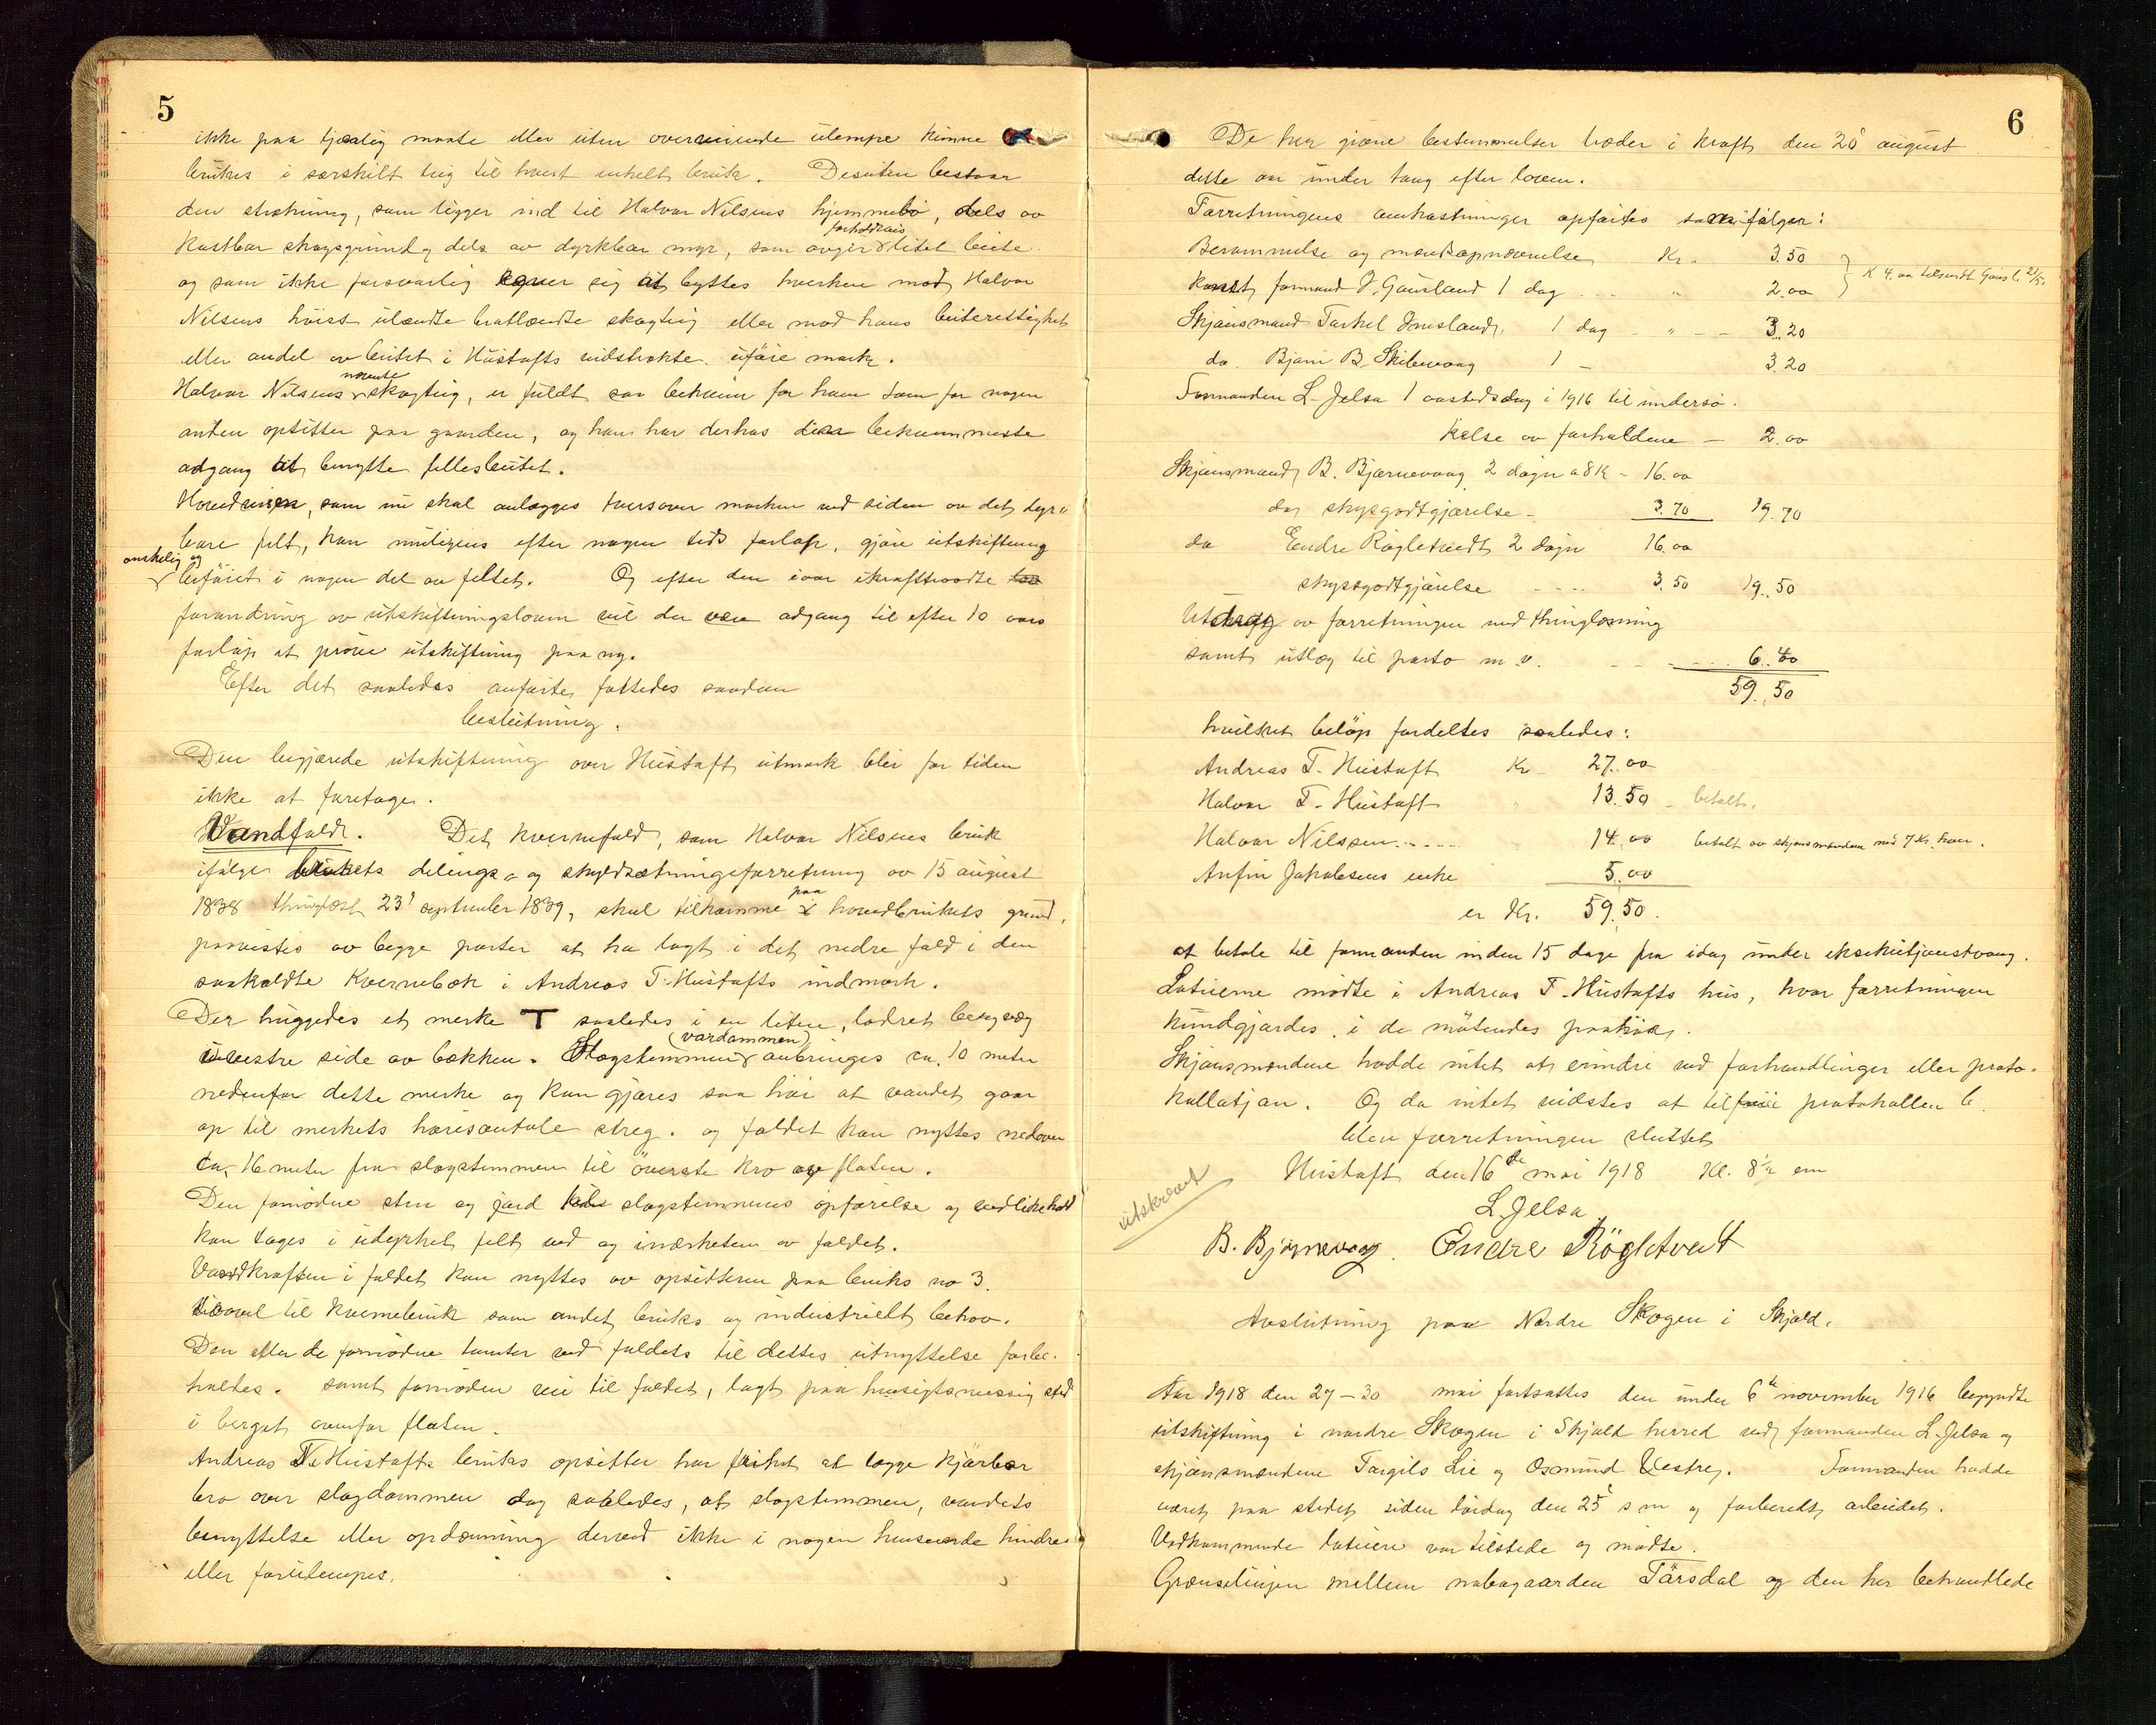 5
ikke paa tjenlig maate eller uten overveiende ulempe kunne
brukes i særskilt teig til hvert enkelt bruk. Desuten bestaar
den strekning, som ligger ind til Halvor Nilsens hjemmebø, dels av
forholdsvis
kostbar skogsgrund og dels av dyrkbar myr, som avgir litet beite
og som ikke forsvarlig egner sig at byttes hverken mod Halvor
Nilsens høist ulændte bratlændte skogteig eller mod hans beiterettighet
eller andel av beitet i Hustofts vidstrakte utmark.
nævnte
Halvor Nilsens skogteig, er fuldt saa bekvem for ham som for nogen
anden opsitter paa gaarden, og han har derhos den bekvemmeste
adgang til at benytte fellesbeitet.
Hovedveien, som nu skal anlægges tversover marken ved siden av det dyrk
bare felt, kan muligens efter nogen tids forløp, gjøre utskiftning
ønskelig og
beføiet i nogen del av feltet. Og efter den iaar ikrafttraadte
forandring av utskiftningsloven vil der være adgang til efter 10 aars
forløp at prøve utskiftning paa ny.
Efter det saaledes anførte fattedes saadan
beslutning:
Den begjærede utskiftning over Hustoft utmark blir for tiden
ikke at foretage.
Vandfald. Det kvernefald, som Halvor Nilsens bruk
ifølge brukets delings- og skyldsætningsforretning av 15 august
1838 thinglæst 23' september 1839, skal tilkomme paa hovedbrukets grund,
paavistes av begge parter at ha ligt i det nedre fald i den
saakaldte Kvernebæk i Andreas T. Hustofts indmark.
Der huggedes et merke T saaledes i en liten, lodret bergvæg
i vestre side av bækken. Slogstemmen (vardammen) anbringes ca. 10 meter
nedenfor dette merke og kan gjøres saa høi at vandet gaar
op til merkets horisontale streg. og faldet kan nyttes nedover
ca. 16 meter fra slogstemmen til øverste kro av flaten.
Den fornødne sten og jord til slogstemmens opførelse og vedlikehold
kan tages i udyrket felt ved og i nærheten av faldet.
Vandkraften i faldet kan nyttes av opsitteren paa bruks no 3.
saavel til kvernebruk som andet bruks og industrielt behov.
Den eller de fornødne tomter ved faldets til dettes utnyttelse forbe-
holdes. samt fornøden vei til faldet, lagt paa hensigtsmessig sted
i berget ovenfor flaten.
Andreas T. Hustofts bruks opsitter har frihet at lægge kjørbar
bro over slogdammen dog saaledes, at slogstemmen, vandets
benyttelse eller opdæmning derved ikke i nogen henseende hindres
eller forulempes.
6
De her givne bestemmelser træder i kraft den 20' august
dette aar under tvang efter loven.
Forretningens omkostninger opførtes som følger:
Berammelse og mændsopnævnelse Kr. 3.50
Konst. formand J Gausland 1 dag " 2.00
Kr 4.00 tilsendt Gausl. 21/5.
Skjønsmand Torkel Imsland, 1 dag - " - 3.20
do. Bjarne B. Skibevaag 1 - 3.20
Formanden L. Jelsa 1 aastedsdag i 1916 til undersø-
kelse av forholdene - 2.00
Skjønsmand B. Bjørnevaag 2 døgn a 8 K - 16.00
do. skysgodtgjørelse - 3.70 19.70
do Endre Røgletvedt 2 døgn 16.00
skyssgodtgjørelse - 3.50 19.50
Utdrag av forretningen med thinglæsning
samt utlæg til porto m.v. 6.40
59.50
hvilket beløp fordeltes saaledes:
Andreas T. Hustoft Kr 27.00
Halvor T. Hustoft " 13.50 betalt.
Halvor Nilssen..... 14.00 betalt av skjønsmændene med 7 Kr. hver.
Anfin Jakobsens enke 5.00
er Kr. 59.50.
at betale til formanden inden 15 dage fra idag under eksekutjonstvang.
Lotuerne mødte i Andreas T. Hustofts hus, hvor forretningen
kundgjordes i de møtendes paahør.
Skjønsmændene hadde intet at erindre ved forhandlinger eller proto-
kollatjon. Og da intet vidstes at tilføie protokollen
blev forretningen sluttet
utskrevet
Hustoft den 16de mai 1918 Kl. 8½ em
L. Jelsa.
B. Bjørnevaag. Endre Rögletvedt
Avslutning paa Nordre Skogen i Skjold.
Aar 1918 den 29-30 mai fortsattes den under 6te november 1916 begyndte
utskiftning i nordre Skogen i Skjold herred ved formanden L. Jelsa og
skjønsmændene Torgils Lie og Osmund Vestrej. Formanden hadde
været paa stedet siden lørdag den 25' s m og forberedt arbeidet.
Vedkommende lotuere var tilstede og mødte.
Grænselinjen mellem nabogaarden Tårsdal og den her behandlede